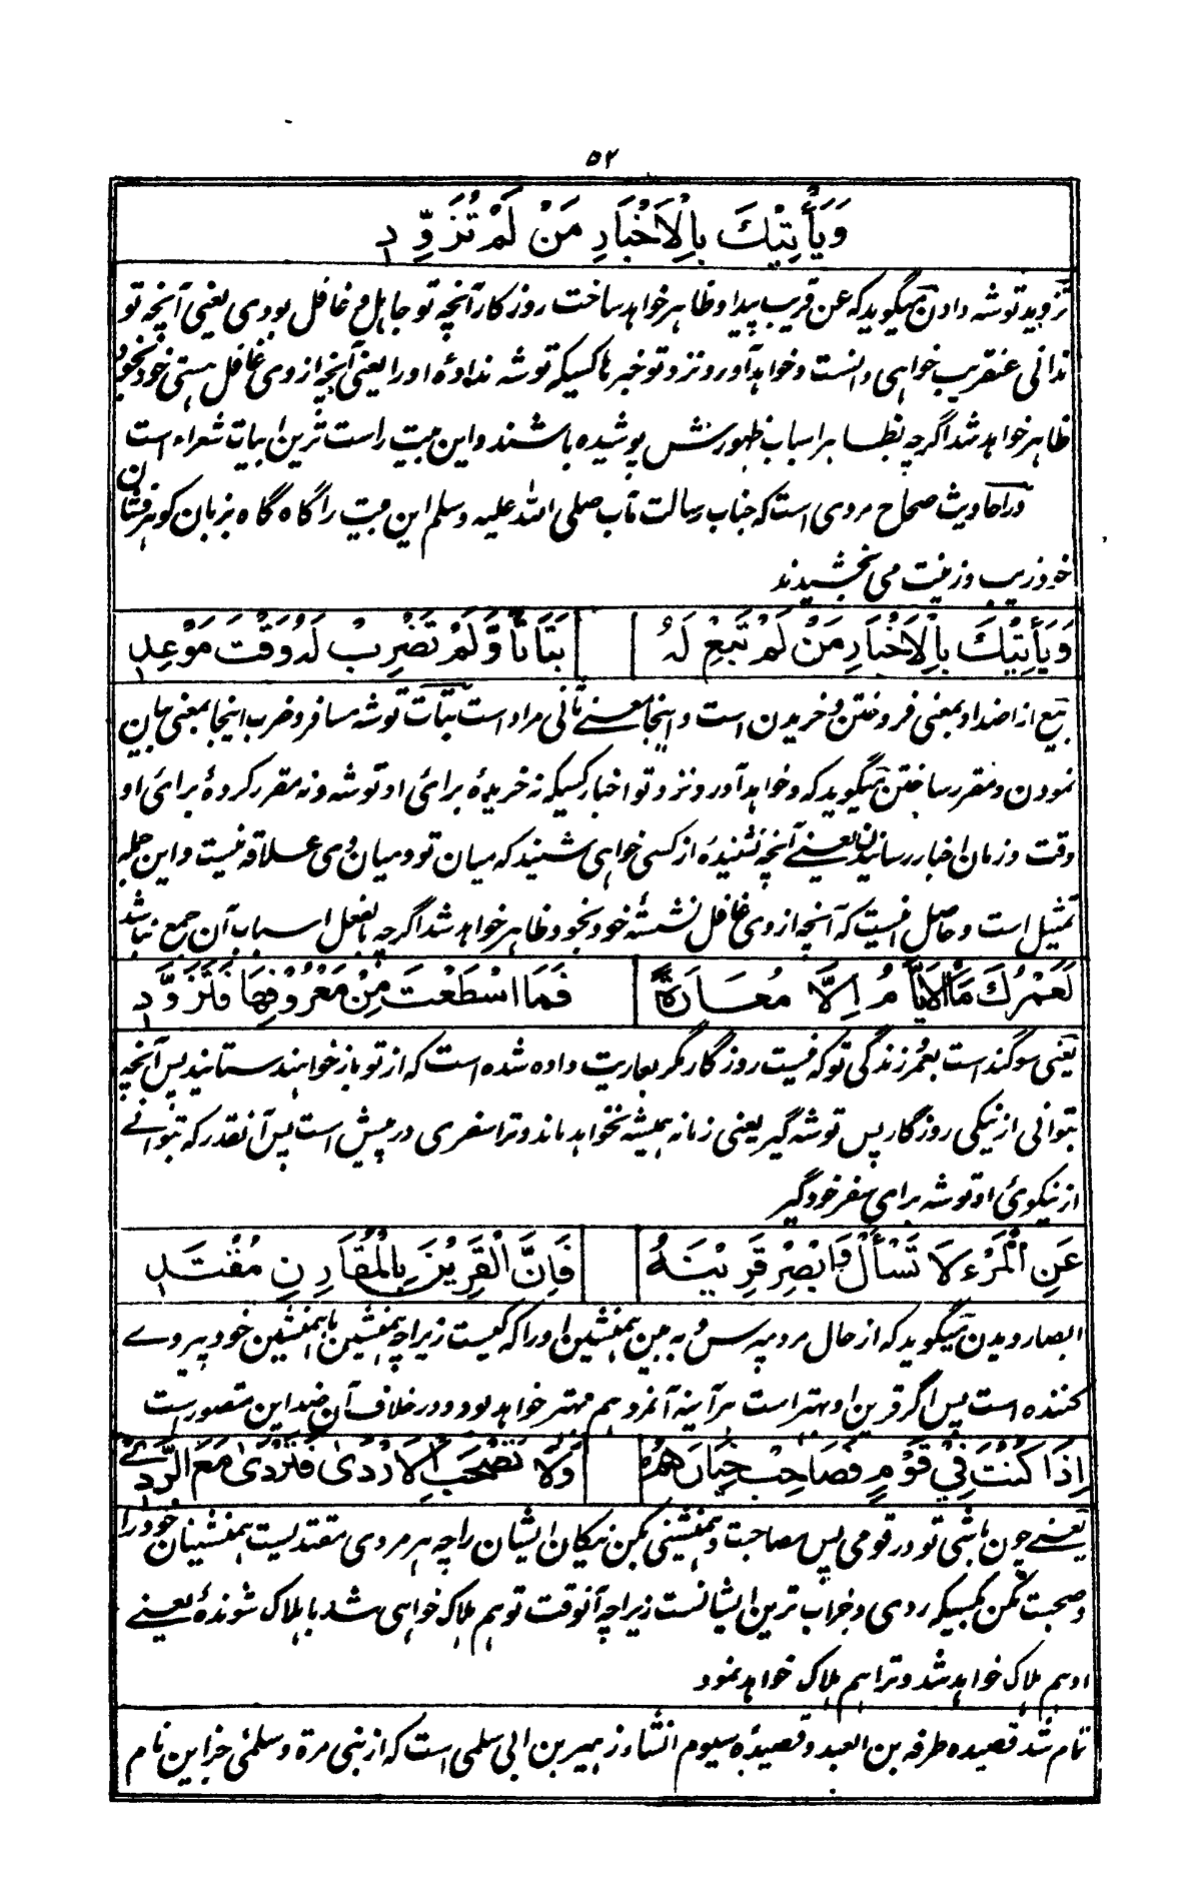 ۵۲
وَيَأْتِيْكَ بِالْاَخْبَارِ مَنْ لَمْ تُزَوِّدِ
تزوید توشه دادن میگوید که عن قریب پیدا و ظاهر خواهد ساخت روزگار آنچه تو جاهل و غافل بودی یعنی آنچه تو
ندانی عنقریب خواهی دانست و خواهد آورد نزد تو خبرها کسیکه توشه نداده او را یعنی آنچه از وی غافل هستی خود بخود
ظاهر خواهد شد اگرچه بظاهر اسباب ظهورش پوشیده باشند و این بیت راست ترین ابیات شعراء است
و در احادیث صحاح مروی است که جناب رسالت مآب صلی الله علیه وسلم این بیت را گاه گاه بزبان گوهرفشان
خود زیب و زینت می بخشیدند
وَيَأْتِيْكَ بِالْاَخْبَارِ مَنْ لَمْ تَبِعْ لَهُ بَتَاتًا وَّلَمْ تَضْرِبْ لَهُ وَقْتَ مَوْعِدِ
بیع از اضداد بمعنی فروختن و خریدن است و اینجا معنے ثانی مراد است بتات توشه مسافر و ضرب اینجا بمعنی بیان
نمودن و مقرر ساختن میگوید که و خواهد آورد نزد تو اخبار کسیکه نه خریدهٔ برای او توشه و نه مقرر کردهٔ برای او
وقت و زمان اخبار رسانیدن یعنے آنچه نشنیدهٔ از کسی خواهی شنید که میان تو و میان وی علاقه نیست و این جمله
تمثیل است و حاصل اینست که آنچه از وی غافل نشستهٔ خود بخود ظاهر خواهد شد اگرچه بالفعل اسباب آن جمع نباشد
لَعَمْرُكَ مَا الْاَيَّامُ اِلَّا مُعَارَةٌ فَمَا اسْطَعْتَ مِنْ مَعْرُوْفِهَا فَتَزَوَّدِ
یعنی سوگند است بعمر زندگی تو که نیست روزگار مگر بعاریت داده شده است که از تو باز خواهند ستانید پس آنچه
بتوانی از نیکی روزگار پس توشه گیر یعنی زمانه همیشه نخواهد ماند و ترا سفری در پیش است پس آنقدر که بتوانے
از نیکوئی او توشه برای سفر خود گیر
عَنِ الْمَرْءِ لَا تَسْأَلْ وَاَبْصِرْ قَرِيْنَهُ فَاِنَّ الْقَرِيْنَ بِالْمُقَارِنِ مُقْتَدِ
ابصار دیدن میگوید که از حال مرد مپرس و به بین همنشین او را که کیست زیراچه همنشین با همنشین خود پیروے
کننده است پس اگر قرین او بهتر است هرآینه آنمرد هم بهتر خواهد بود و در خلاف آن ضد این متصور است
اِذَا كُنْتَ فِيْ قَوْمٍ فَصَاحِبْ خِيَارَهُمْ وَلَا تَصْحَبِ الْاَرْدٰى فَتَرْدٰى مَعَ الرَّدِيْ
یعنے چون باشی تو در قومی پس مصاحبت و همنشینی بکن نیکان ایشان را چه هر مردی مقتدیست همنشینان خود را
و صحبت مکن بکسیکه ردی و خراب ترین ایشانست زیراچه آنوقت تو هم هلاک خواهی شد با هلاک شوندهٔ یعنے
او هم هلاک خواهد شد و ترا هم هلاک خواهد نمود
تمام شد قصیده طرفه بن العبد و قصیدهٔ سیوم انشاء زهیر بن ابی سلمی است که از بنی مرة و سلمی جز این نام